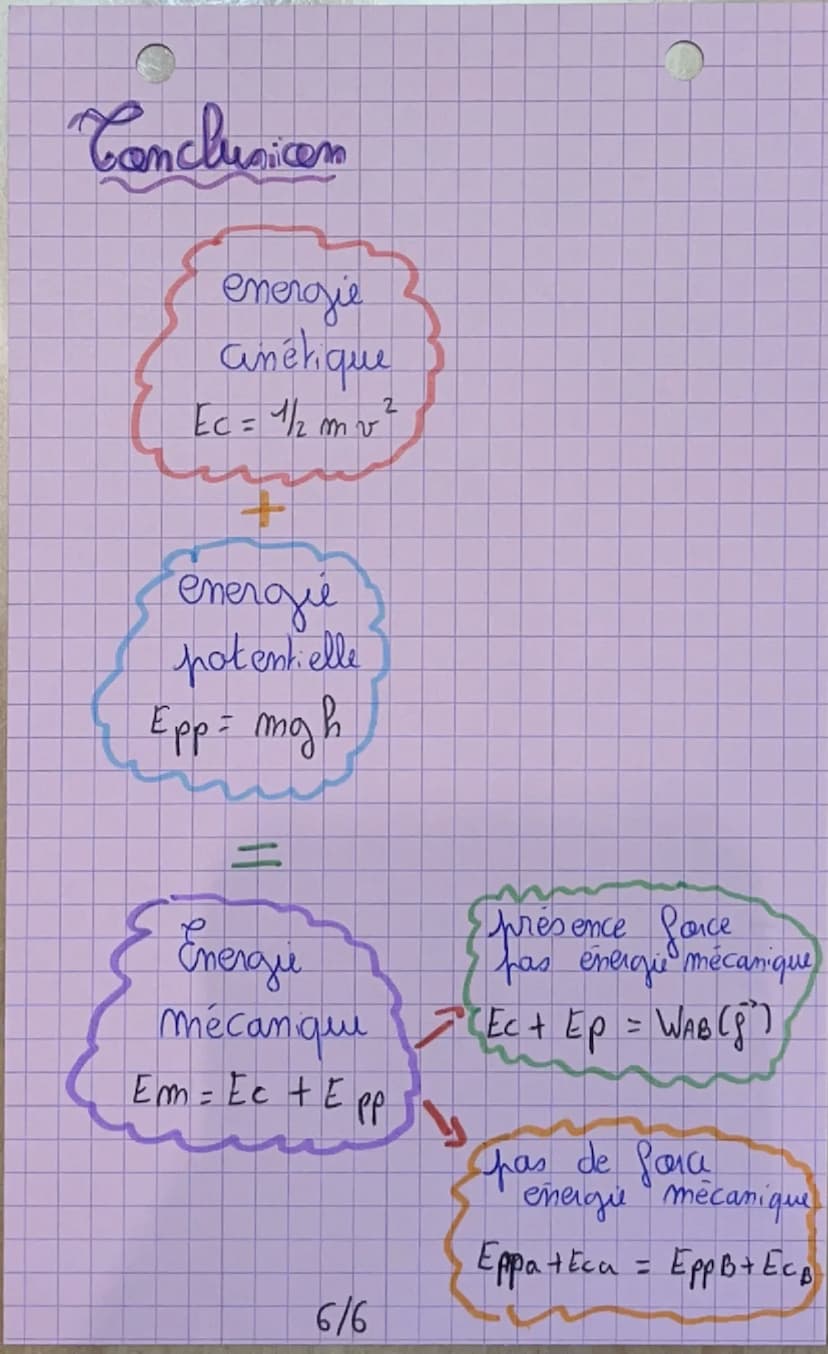 Conclusion
energie
cinétique
Ec = 1/2 m v²
+
energie
potentielle
Epp = mgh
=
Énergie
mécanique
Em = Ec + Epp
présence force
pas énergie mécanique
Ec + Ep = WAB(f⃗)
pas de force
énergie mécanique
Eppa + Eca = EppB + EcB
6/6